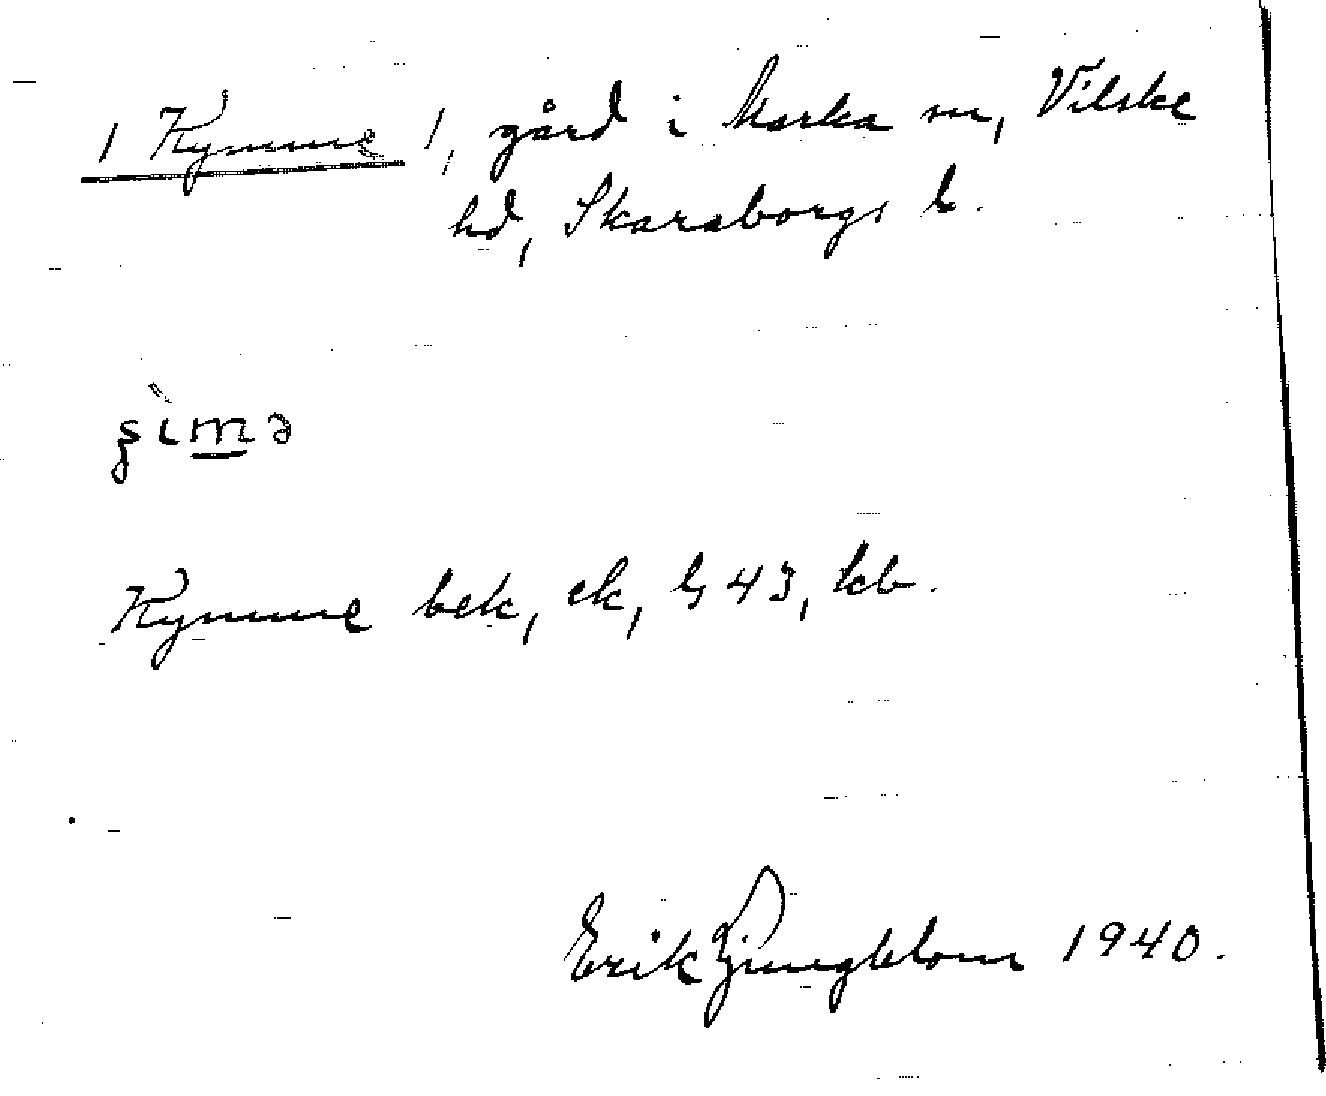 1 Kymme 1, gård i Marka sn, Vilske
hd, Skaraborgs l.
Kymme bek, ek, G 43, kb.
Erik Ljungblom 1940.